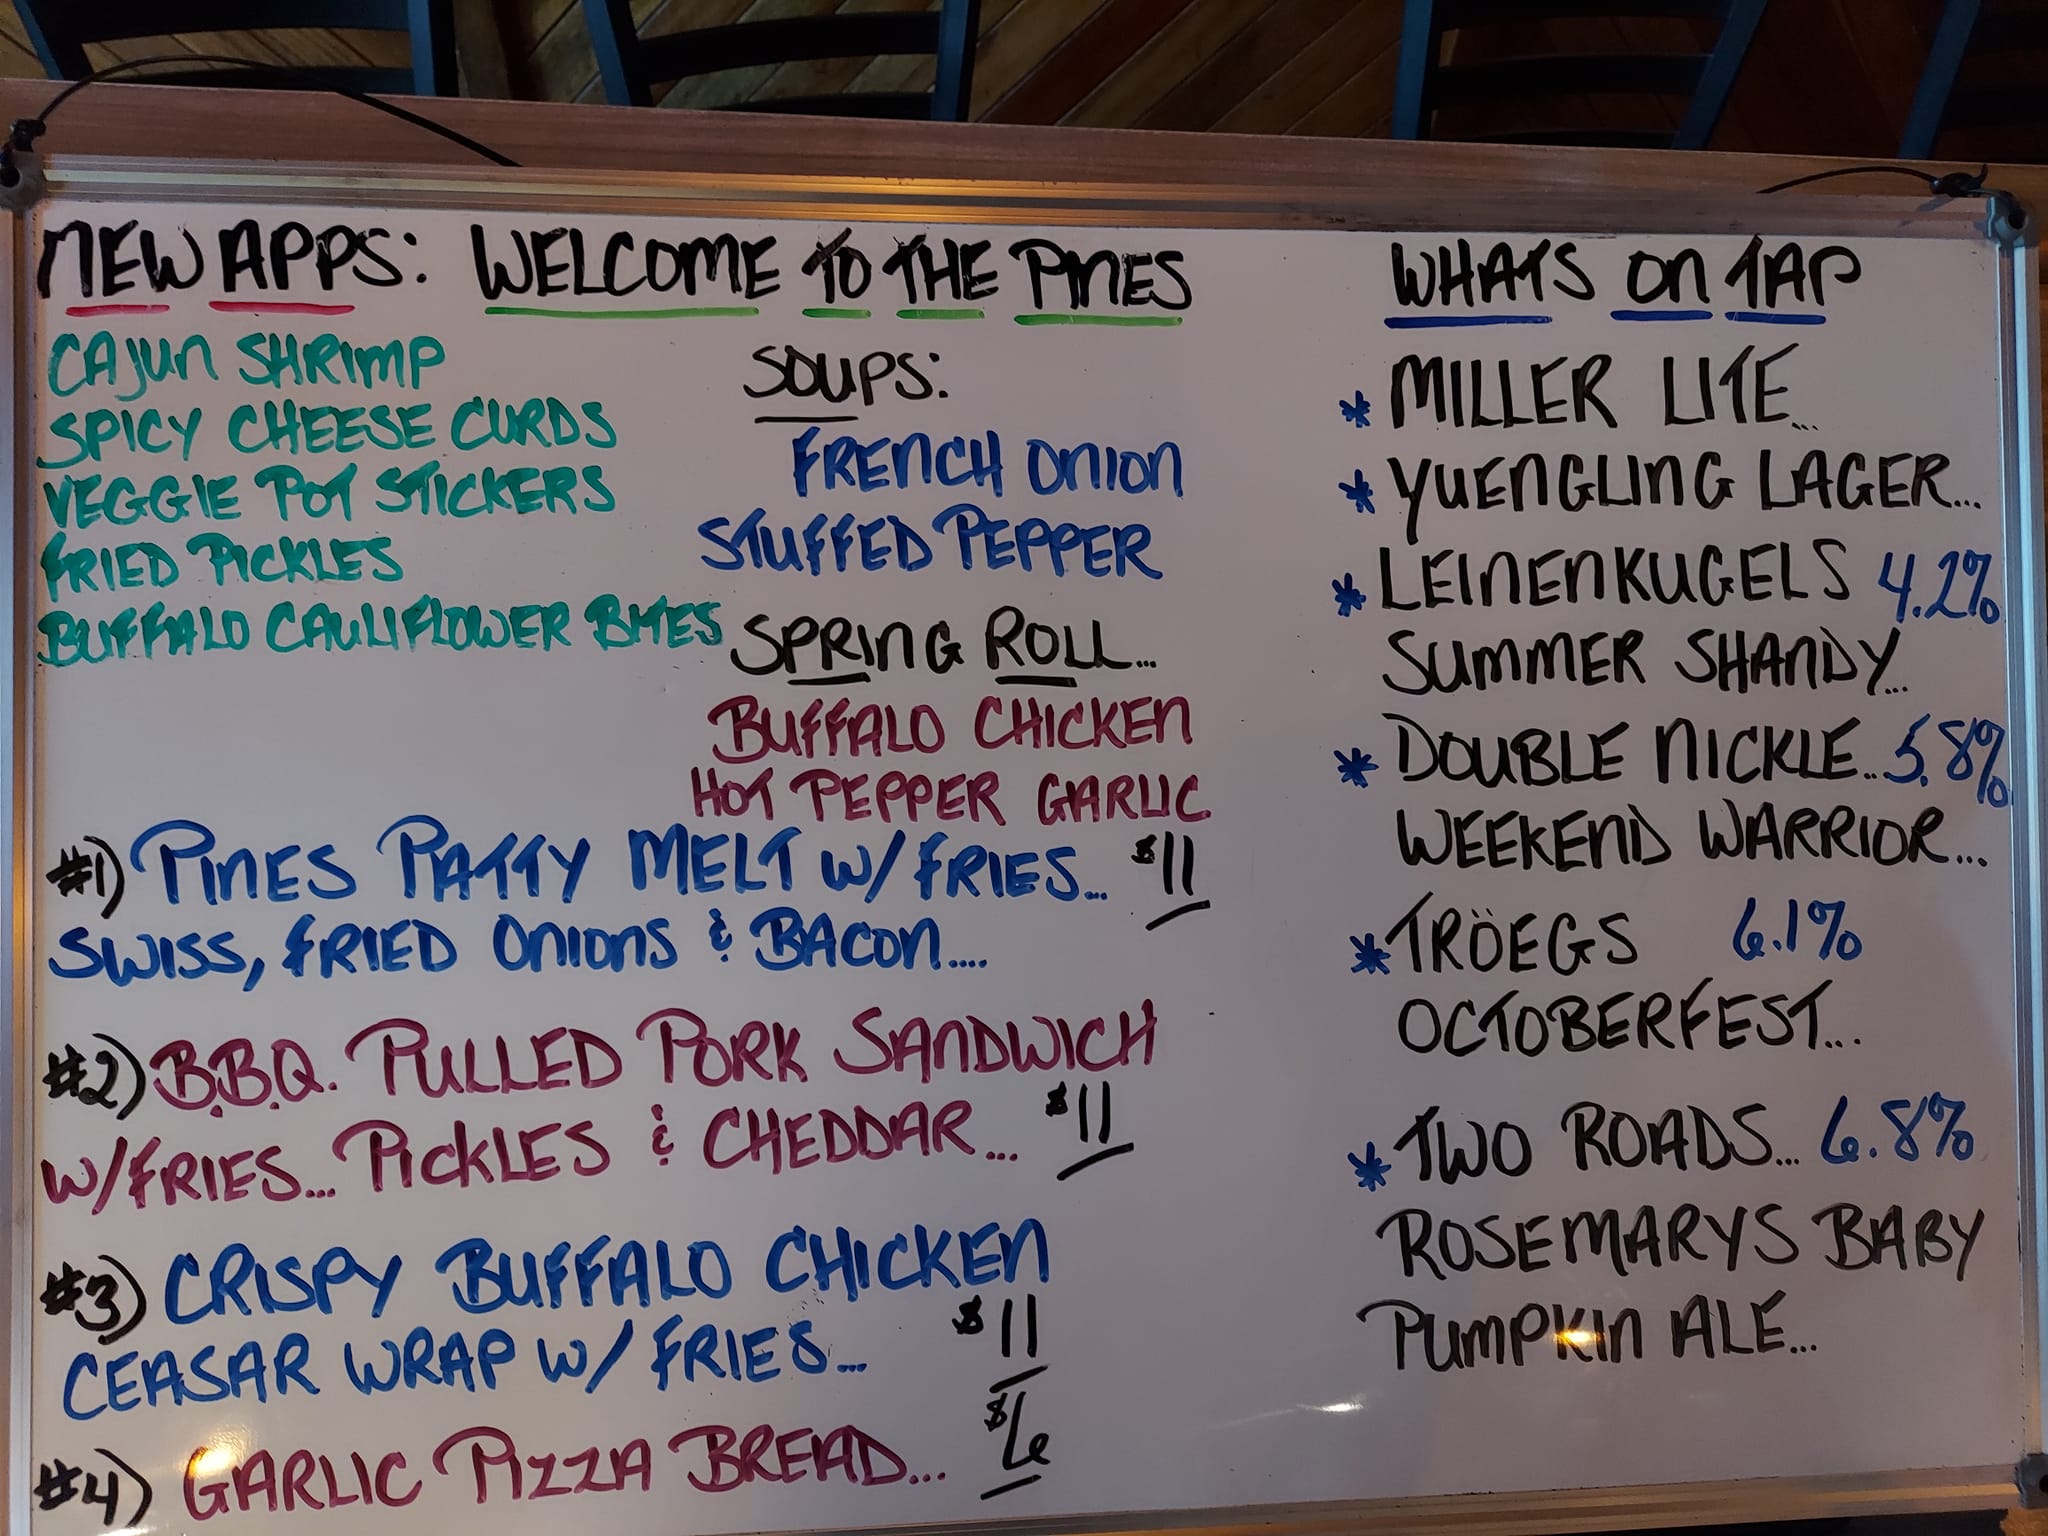 NEW APPS: WELCOME TO THE PINES
CAJUN SHRIMP
SPICY CHEESE CURDS
VEGGIE POT STICKERS
FRIED PICKLES
BUFFALO CAULIFLOWER BITES
SOUPS:
FRENCH ONION
STUFFED PEPPER
SPRING ROLL...
BUFFALO CHICKEN
HOT PEPPER GARLIC
#1) PINES PATTY MELT W/ FRIES... $11
SWISS, FRIED ONIONS & BACON....
#2) B.B.Q. PULLED PORK SANDWICH
W/FRIES... PICKLES & CHEDDAR... $11
#3) CRISPY BUFFALO CHICKEN
CEASAR WRAP W/ FRIES... $11
#4) GARLIC PIZZA BREAD... $6
WHATS ON TAP
* MILLER LITE...
* YUENGLING LAGER...
* LEINENKUGELS 4.2%
SUMMER SHANDY...
* DOUBLE NICKLE... 5.8%
WEEKEND WARRIOR...
* TRÖEGS 6.1%
OCTOBERFEST...
* TWO ROADS... 6.8%
ROSEMARYS BABY
PUMPKIN ALE...